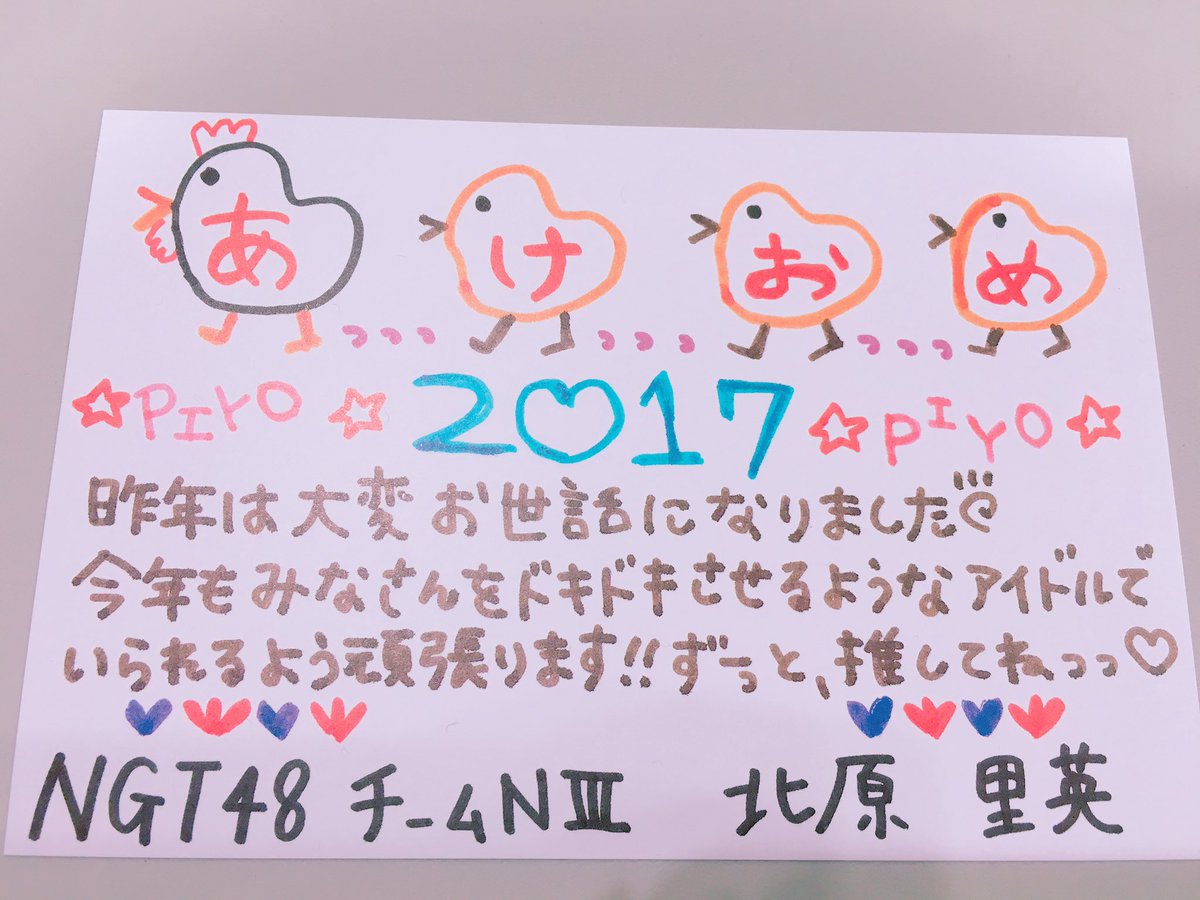 あけおめ
☆PIYO☆ 2♡17 ☆PIYO☆
昨年は大変お世話になりました
今年もみなさんをドキドキさせるようなアイドルで
いられるよう頑張ります!!ずーっと、推してねっっ♡
NGT48 チームNⅢ 北原 里英